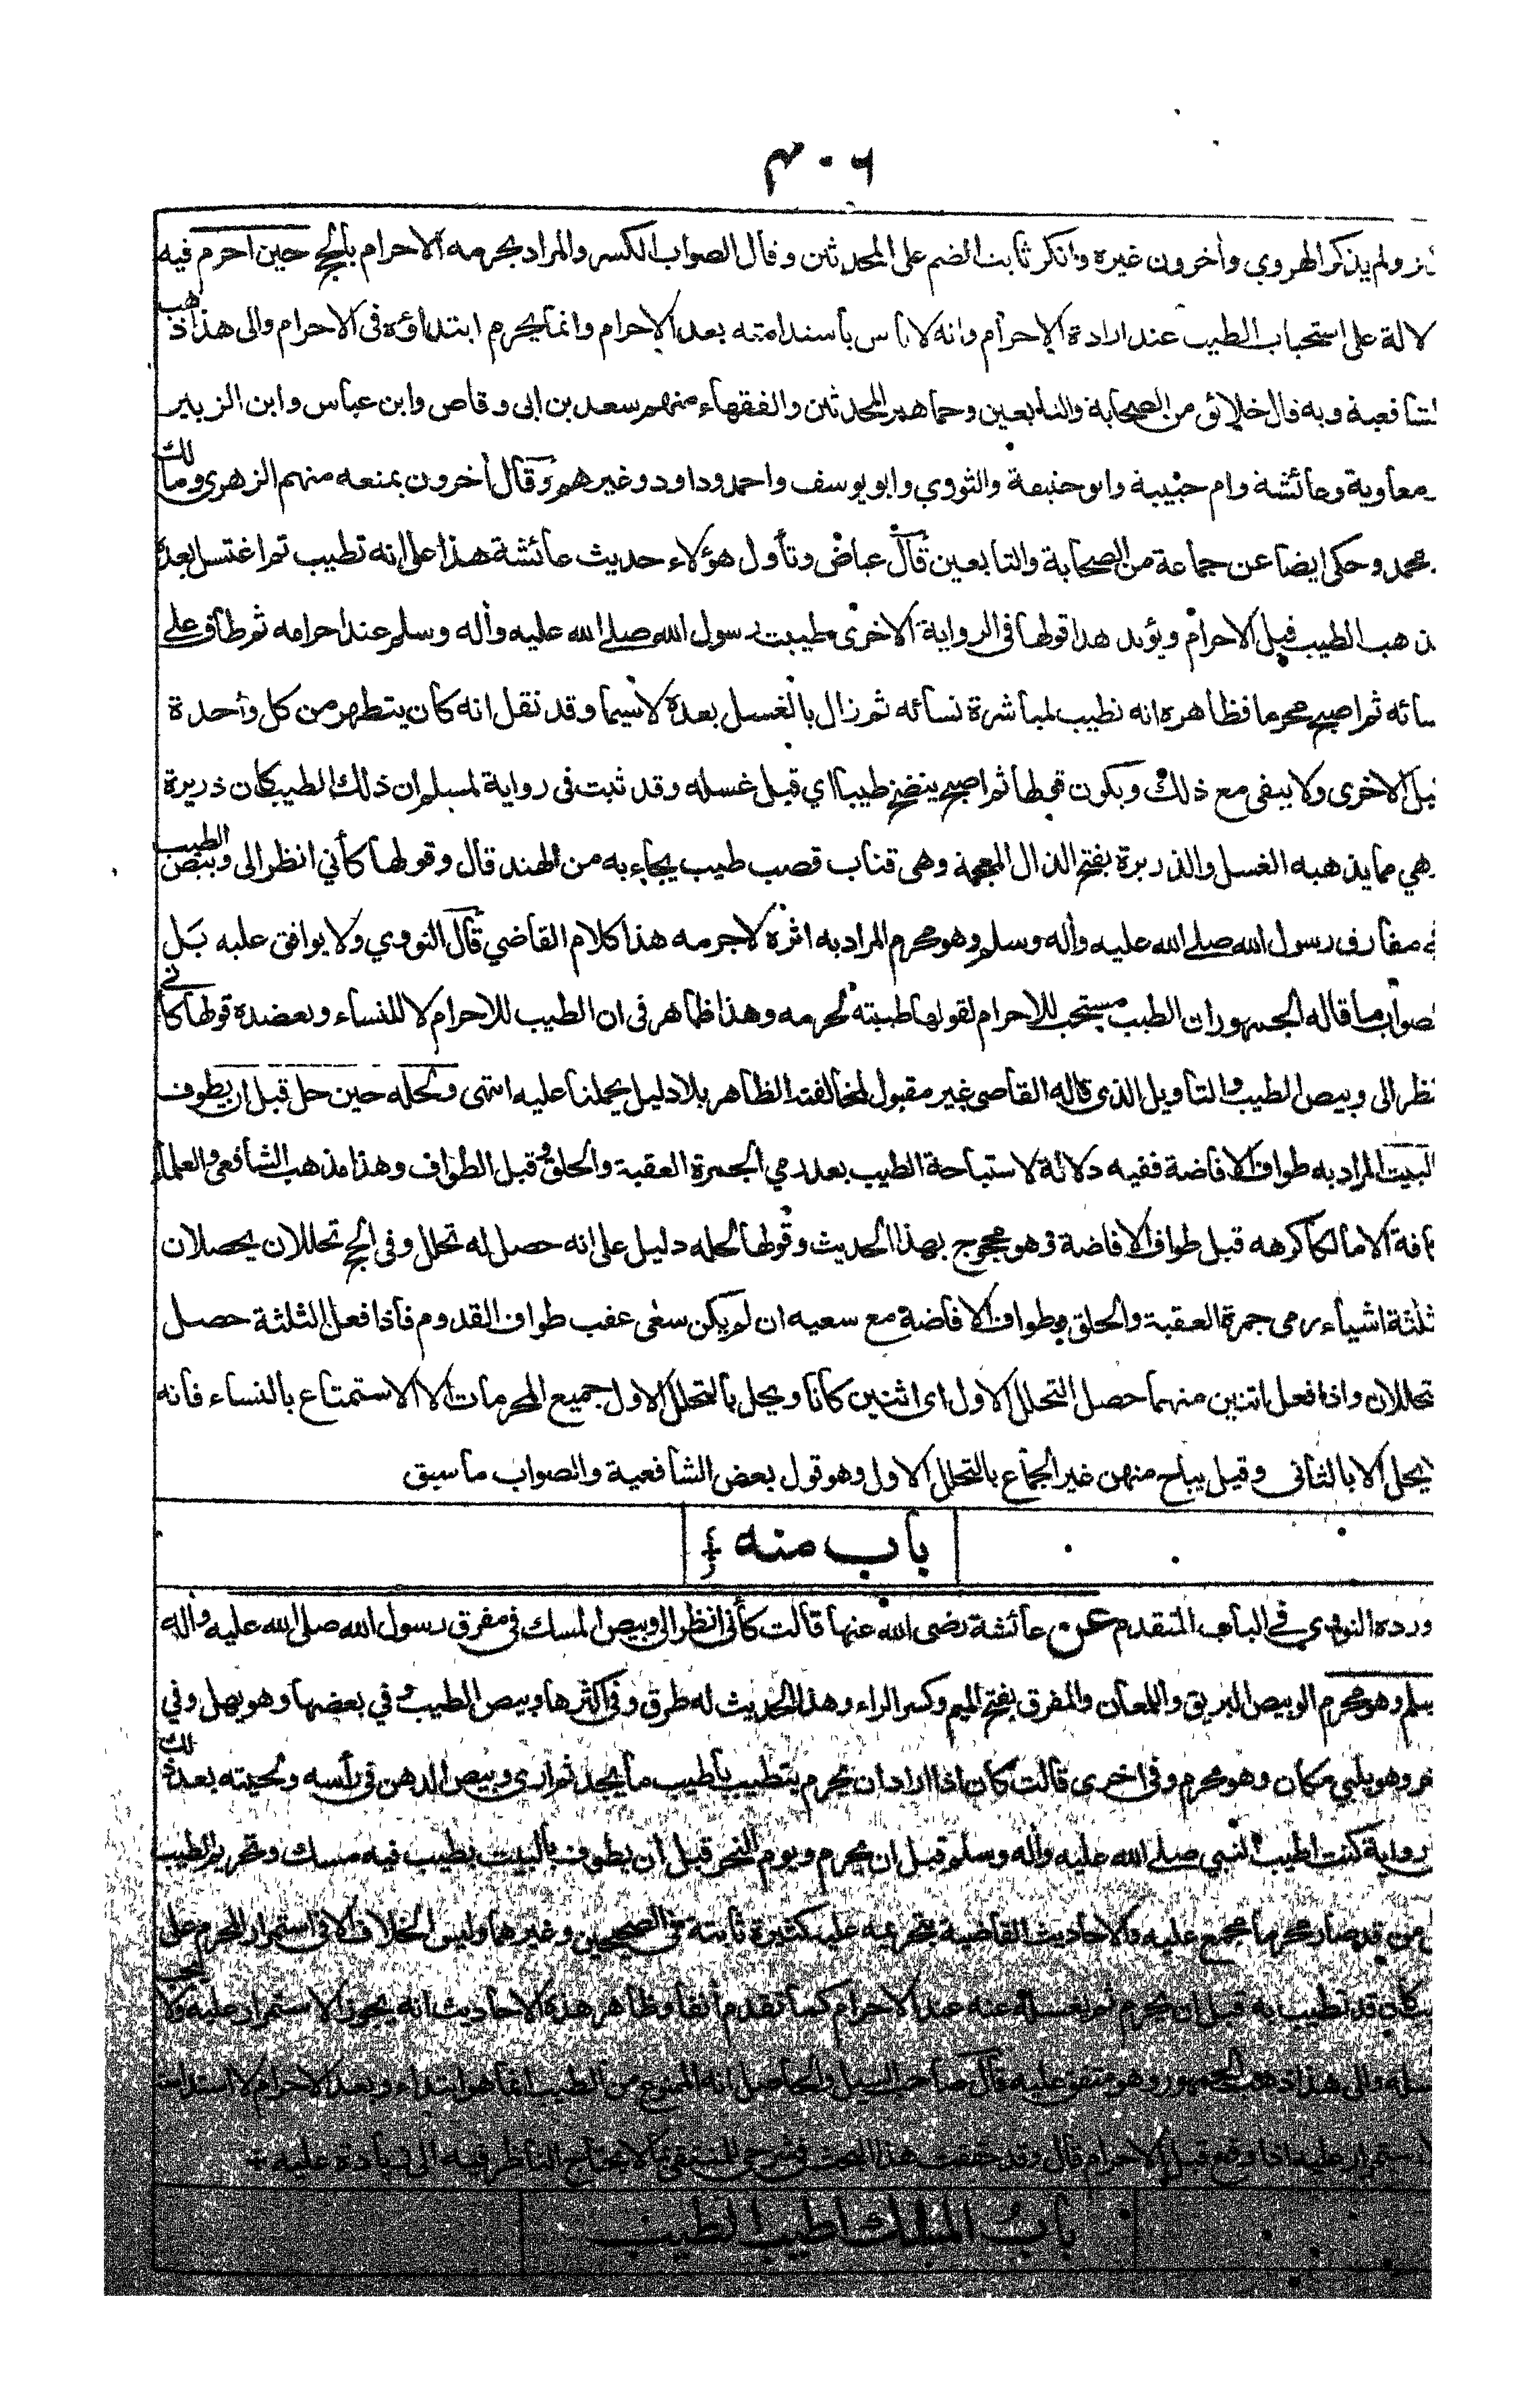 ٤٠٦
ولم يذكر الهروي وأخرون غيره وانكر ثابت الضم على المحدثين وقال الصواب الكسر والمراد بحرمه الاحرام بالحج حين احرم فيه
لالة على استحباب الطيب عند ارادة الاحرام وانه لا باس باستدامته بعد الاحرام وانما يحرم ابتداؤه فى الاحرام والى هذا ذهب
الشافعية وبه قال خلائق من الصحابة والتابعين وجماهير المحدثين والفقهاء منهم سعد بن ابى وقاص وابن عباس وابن الزبير
ومعاوية وعائشة وام حبيبة وابو حنيفة والثوري وابو يوسف واحمد وداود وغيرهم وقال أخرون بمنعه منهم الزهرى ومالك
ومحمد وحكى ايضا عن جماعة من الصحابة والتابعين قال عياض وتأول هؤلاء حديث عائشة هذا على انه تطيب ثم اغتسل بعده
ذهب الطيب قبل الاحرام ويؤيد هذا قولها فى الرواية الاخرى طيبت رسول الله صلے الله عليه وأله وسلم عند احرامه ثم طاف على
سائه ثم اصبح محرما فظاهره انه تطيب لمباشرة نسائه ثم زال بالغسل بعده لا سيما وقد نقل انه كان يتطهر من كل واحدة
قبل الاخرى ولا يبقى مع ذلك ويكون قولها ثم اصبح ينضخ طيبا اي قبل غسله وقد ثبت فى رواية لمسلم ان ذلك الطيب كان ذريرة
وهي مما يذهبه الغسل والذريرة بفتح الذال المعجمة وهى قتاب قصب طيب يجاء به من الهند قال وقولها كأني انظر الى وبيص الطيب
في مفارق رسول الله صلے الله عليه وأله وسلم وهو محرم المراد به اثره لا جرمه هذا كلام القاضي قال النووي ولا يوافق عليه بل
الصواب ما قاله الجمهور ان الطيب مستحب للاحرام لقولها طيبته لحرمه وهذا ظاهر فى ان الطيب للاحرام لا للنساء ويعضده قولها كأني
انظر الى وبيص الطيب والتاويل الذى قاله القاضى غير مقبول لمخالفته الظاهر بلا دليل يحملنا عليه انتهى ولحله حين حل قبل ان يطوف
البيت المراد به طواف الافاضة ففيه دلالة لاستباحة الطيب بعد رمي الجمرة العقبة والحلق وقبل الطواف وهذا مذهب الشافعى والعلماء
كافة الا مالكا كرهه قبل طواف الافاضة وهو محجوج بهذا الحديث وقولها لحله دليل على انه حصل له تحلل وفى الحج تحللان يحصلان
ثلثة اشياء رمى جمرة العقبة والحلق وطواف الافاضة مع سعيه ان لم يكن سعى عقب طواف القدوم فاذا فعل الثلثة حصل
تحللان واذا فعل اثنين منهما حصل التحلل الاول اى اثنين كانا ويحل بالتحلل الاول جميع المحرمات الا الاستمتاع بالنساء فانه
يحل الا بالثانى وقيل يباح منهن غير الجماع بالتحلل الاول وهو قول بعض الشافعية والصواب ما سبق
باب منه
ورده النووي في الباب المتقدم عن عائشة رضى الله عنها قالت كأنى انظر الى وبيص المسك فى مفرق رسول الله صلى الله عليه وأله
سلم وهو محرم الوبيص البريق واللمعان والمفرق بفتح الميم وكسر الراء وهذا الحديث له طرق وفى اكثرها وبيص الطيب وفي بعضها وهو يهل وفي
وهو يلبي مكان وهو محرم وفى اخرى قالت كان اذا اراد ان يحرم يتطيب بأطيب ما يجد ثم ارى وبيص الدهن فى رأسه ولحيته بعد ذلك
رواية كنت اطيب النبي صلے الله عليه وأله وسلم قبل ان يحرم ويوم النحر قبل ان يطوف بالبيت بطيب فيه مسك وتحريم الطيب
من قد صار محرما مجمع عليه والاحاديث القاضية بتحريمه عليه كثيرة ثابتة فى الصحيحين وغيرهما وليس الخلاف الا فى استمرار المحرم على
كان قد تطيب به قبل ان يحرم ثم لم يغسله عنه عند الاحرام كما تقدم أنفا وظاهر هذه الاحاديث انه يجوز الاستمرار عليه ولا
غسله والى هذا ذهب الجمهور وهو متفق عليه قال صاحب السيل والحاصل انه الممنوع من الطيب انما هو ابتداء وبعد الاحرام لا استدامة
استمرار عليه اذا وقع قبل الاحرام قال وقد حققت هذا البحث فى شرحي للمنتقى بما لا يحتاج الناظر فيه الى زيادة عليه
باب المسك اطيب الطيب